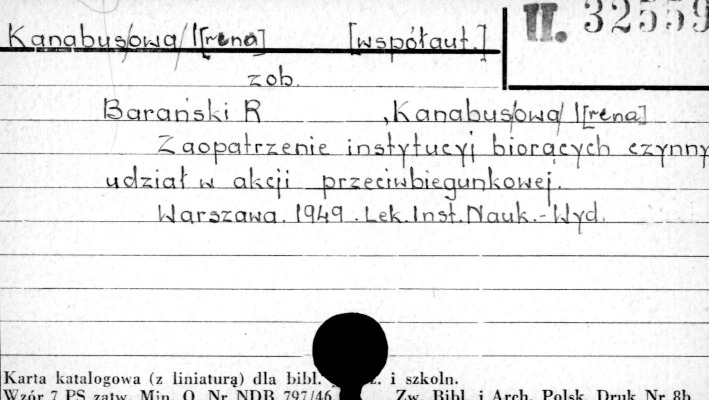 Kanabus/owa/ I[rena] [współaut.] II. 32559
zob.
Barański R , Kanabus/owa/ I[rena]
Zaopatrzenie instytucyj biorących czynny
udział w akcji przeciwbiegunkowej.
Warszawa. 1949. Lek. Inst. Nauk.-Wyd.
Karta katalogowa (z liniaturą) dla bibl. i szkoln.
Wzór 7 PS zatw. Min. O. Nr NDB 797/46 Zw. Bibl. i Arch. Polsk. Druk Nr 8b